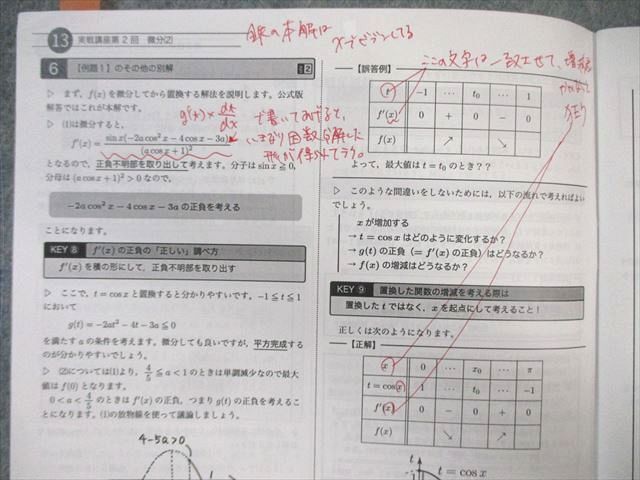 13 実戦講座第2回 微分(2)
鉄の本解は
xでビブンしてる
6 【例題1】のその他の別解
▷ まず、f(x)を微分してから置換する解法を説明します。公式版
解答ではこれが本解です。
▷ (1)は微分すると、
f'(x) = sin x(−2a cos² x − 4 cos x − 3a) / (a cos x + 1)²
g'(x) × dt/dx
で書いてあげると、
いきなり因数分解した
形が得られてラク。
となるので、正負不明部を取り出して考えます。分子は sin x ≧ 0,
分母は (a cos x + 1)² > 0 なので、
−2a cos² x − 4 cos x − 3a の正負を考える
ことになります。
KEY 8 f'(x) の正負の「正しい」調べ方
f'(x) を積の形にして、正負不明部を取り出す
▷ ここで、t = cos x と置換すると分かりやすいです。−1 ≦ t ≦ 1
において
g(t) = −2at² − 4t − 3a ≦ 0
を満たす a の条件を考えます。微分しても良いですが、平方完成する
のが分かりやすいでしょう。
▷ (2)については(1)より、4/5 ≦ a < 1 のときは単調減少なので最大
値は f(0) となります。
0 < a < 4/5 のときは f'(x) の正負、つまり g(t) の正負を考えるこ
とになります。(1)の放物線を使って議論しましょう。
4−5a>0
この文字は一致させて、増減表
【誤答例】
t −1 … t₀ … 1
f'(x) 0 + 0 − 0
f(x) ↗ ↘
よって、最大値は t = t₀ のとき??
▷ このような間違いをしないためには、以下の流れで考えればよい
でしょう。
x が増加する
→ t = cos x はどのように変化するか?
→ g(t) の正負 (= f'(x) の正負) はどうなるか?
→ f(x) の増減はどうなるか?
KEY 9 置換した関数の増減を考える際は
置換した t ではなく、x を起点にして考えること!
正しくは次のようになります。
【正解】
x 0 … x₀ … π
t = cos x 1 … t₀ … −1
f'(x) 0 − 0 + 0
f(x) ↘ ↗
t
t = cos x